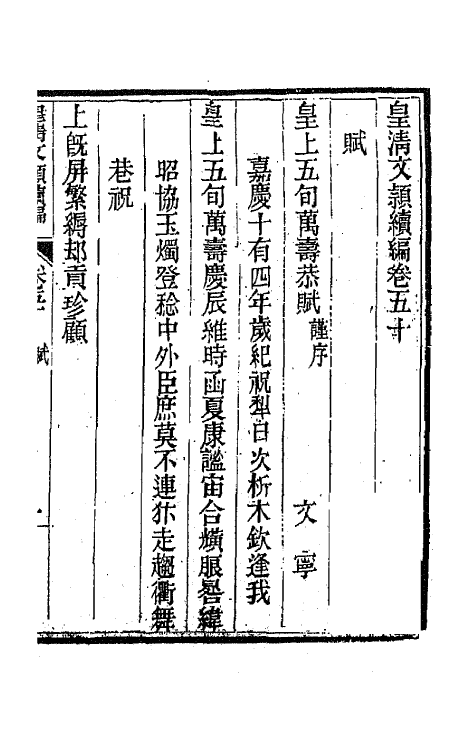 皇清文頴續編卷五十
賦
皇上五旬萬壽恭賦謹序 文寧
嘉慶十有四年歲紀祝犁日次析木欽逢我
皇上五旬萬壽慶辰維時函夏康謐宙合熿服晷緯
昭協玉燭登稔中外臣庶莫不連犿走趨衢舞
巷祝
上旣屏繁縟却貢珍顧
皇清文頴續編 卷五十 賦 一